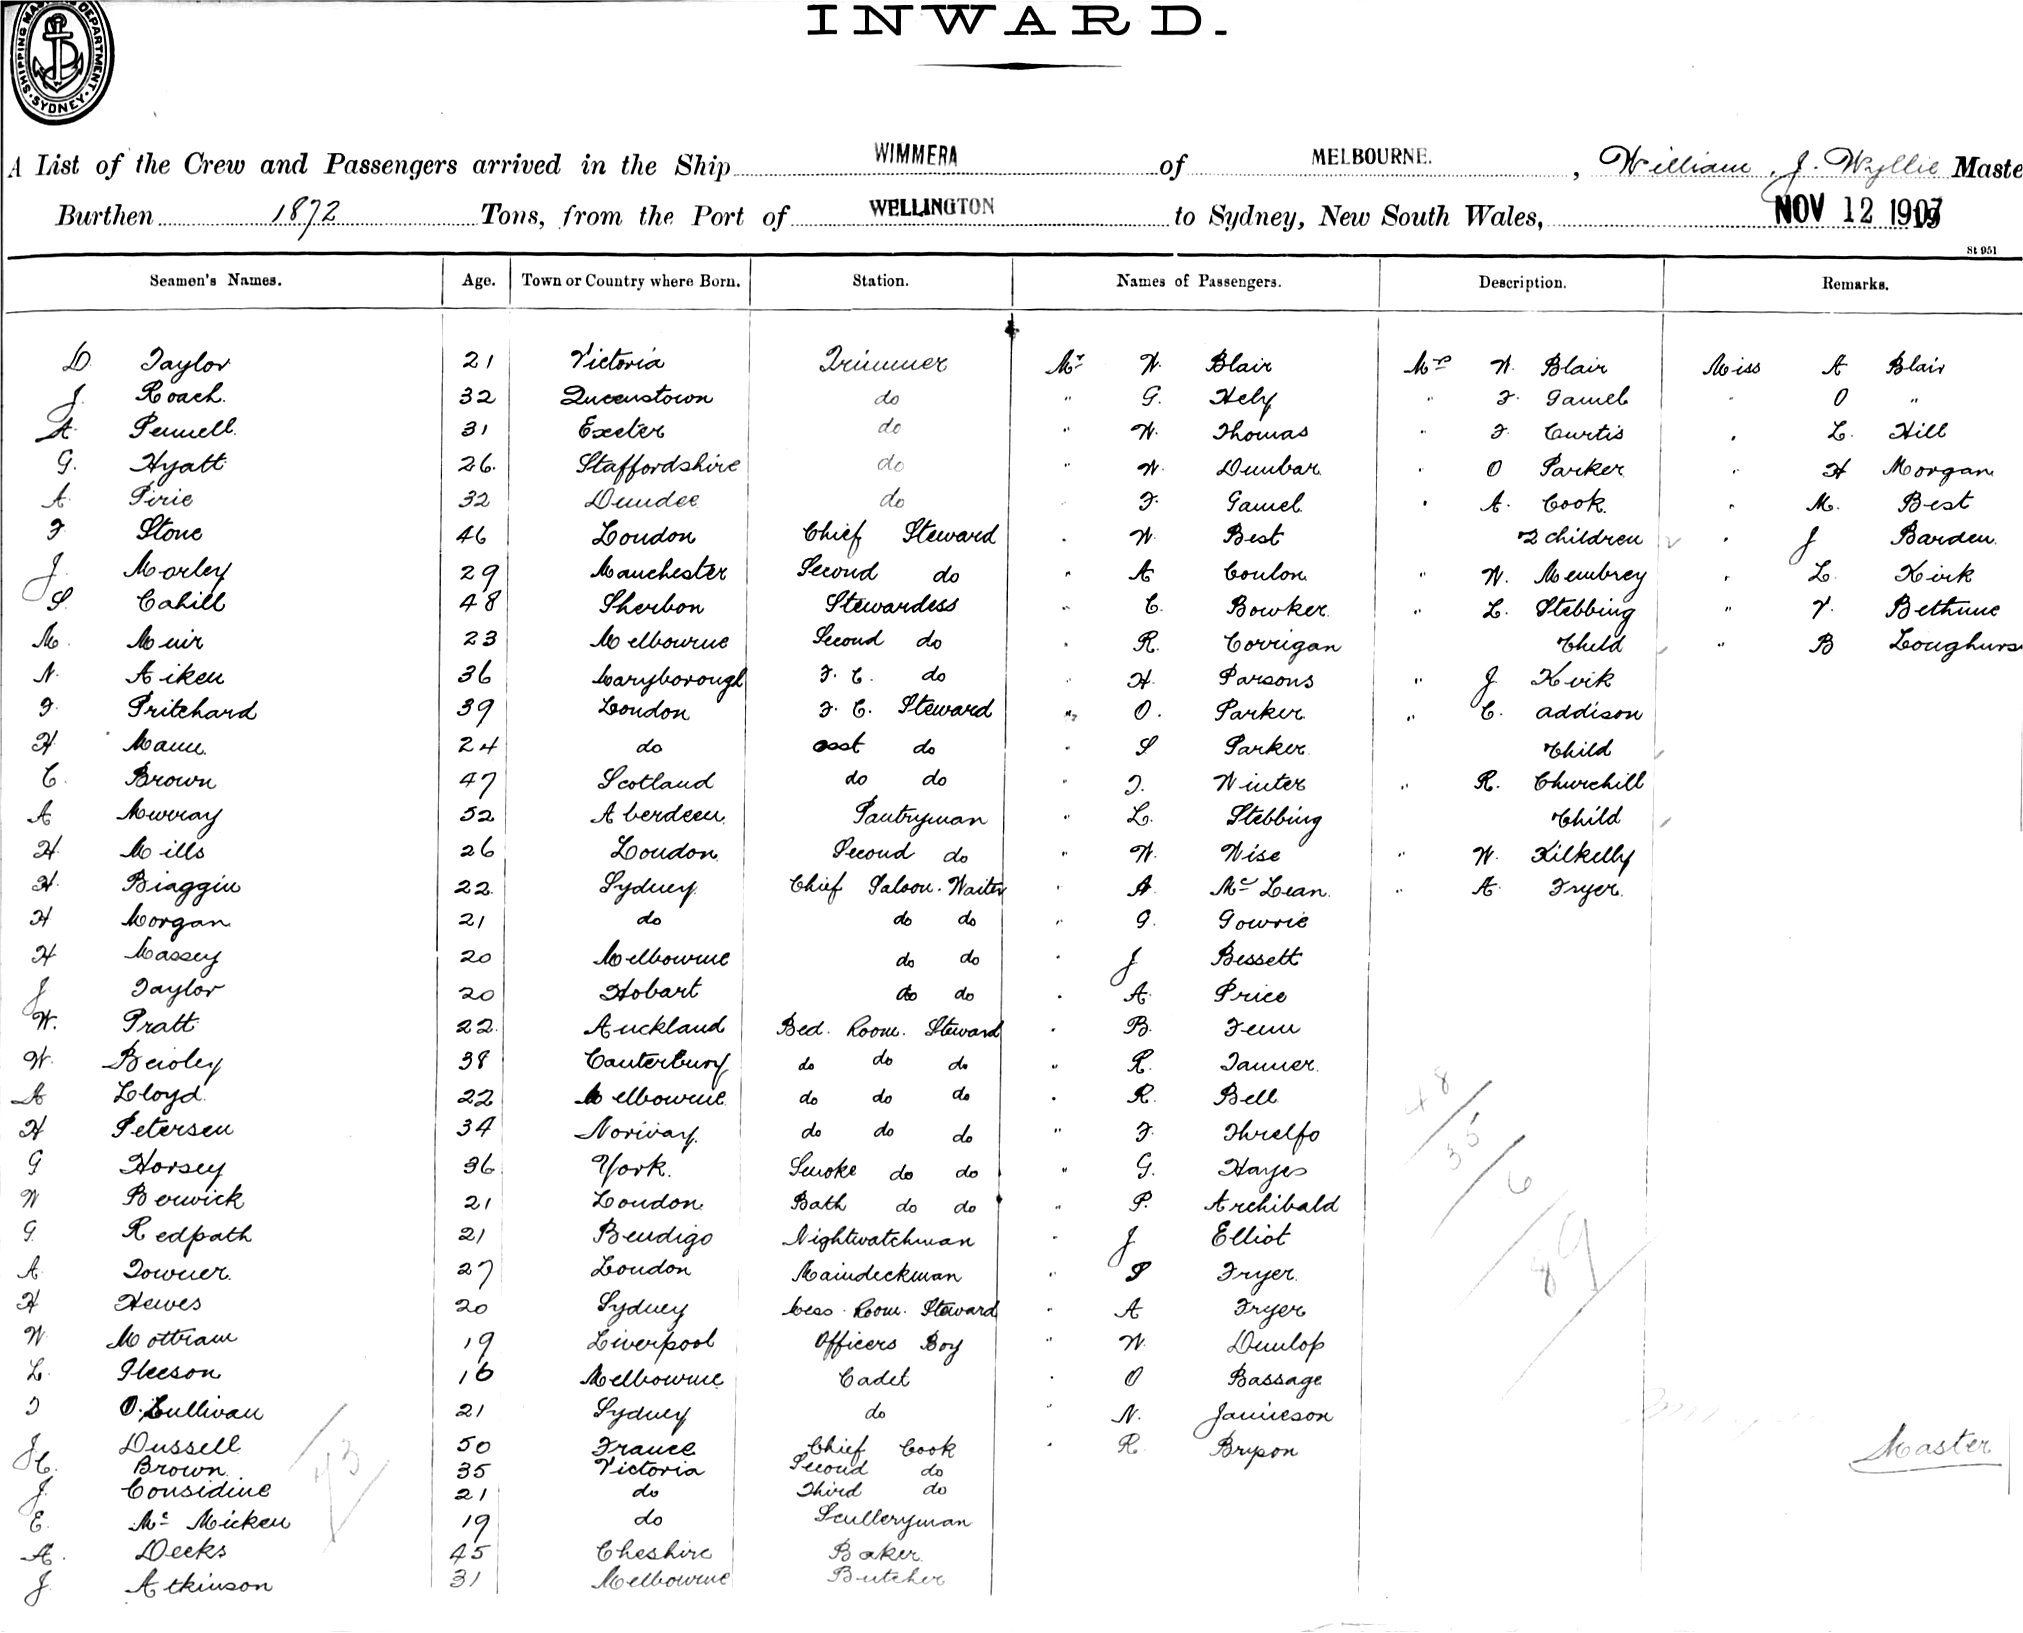 SHIPPING MASTER'S DEPARTMENT SYDNEY
INWARD.
A List of the Crew and Passengers arrived in the Ship WIMMERA of MELBOURNE. , William J. Wyllie Maste
Burthen 1872 Tons, from the Port of WELLINGTON to Sydney, New South Wales, NOV 12 1907
St 951
Seamen's Names. Age. Town or Country where Born. Station. Names of Passengers. Description. Remarks.
D. Taylor 21 Victoria Trimmer Mr W. Blair Mrs W. Blair Miss A Blair
J. Roach. 32 Queenstown do " G. Hely " F. Gamel " O "
A. Pennell. 31 Exeter do " W. Thomas " F. Curtis " L. Hill
G. Hyatt 26. Staffordshire do " W. Dunbar " O Parker " H Morgan
A. Pirie 32 Dundee do " F. Gamel " A. Cook. " M. Best
F Stone 46 London Chief Steward " W. Best 2 children " J Barden.
J. Morley 29 Manchester Second do " A Coulon " W. Membrey " L. Kirk
S. Cahill 48 Sherbon Stewardess " C. Bowker. " L. Stebbing " V. Bethune
M. Muir 23 Melbourne Second do " R. Corrigan Child " B Loughurs
N. Aiken 36 Maryborough F. C. do " H. Parsons " J Kirk
F. Pritchard 39 London F. C. Steward " O. Parker " C. Addison
H Mann. 24 do asst do " S Parker Child
C. Brown 47 Scotland do do " J. Winter " R. Churchill
A Murray 52 Aberdeen. Pantryman " L. Stebbing Child
H Mills 26 London Second do " W. Wise " W. Kilkelly
H. Biaggin 22 Sydney Chief Saloon. Waiter " A. McLean. " A. Fryer.
H Morgan 21 do do do " G. Gowrie
H Massey 20 Melbourne do do " J Bessett
J Taylor 20 Hobart do do " A. Price
W. Pratt 22. Auckland Bed. Room. Steward " B. Fenn
W. Beioley 38 Canterbury do do do " R. Tanner.
A Lloyd. 22 Melbourne do do do " R. Bell 48
H Petersen 34 Norway. do do do " F. Threlfo 35
G Horsey 36 York. Smoke do do " G. Hayes 6
W Berwick 21 London Bath do do " P. Archibald
G. Redpath 21 Bendigo Nightwatchman " J Elliot 89
A. Towner. 27 London Maindeckman " S Fryer.
H Hewes 20 Sydney Mess. Room. Steward " A Fryer
W Mottram 19 Liverpool Officers Boy " W. Dunlop
L. Gleeson 16 Melbourne Cadet " O Bassage
J O.Sullivan 21 Sydney do " N. Jamieson
J. Dussell 50 France Chief Cook " R. Bryson Master
C. Brown. 35 Victoria Second do
J. Considine 21 do Third do
E. Mc Micken 19 do Sculleryman
A. Deeks 45 Cheshire Baker.
J. Atkinson 31 Melbourne Butcher